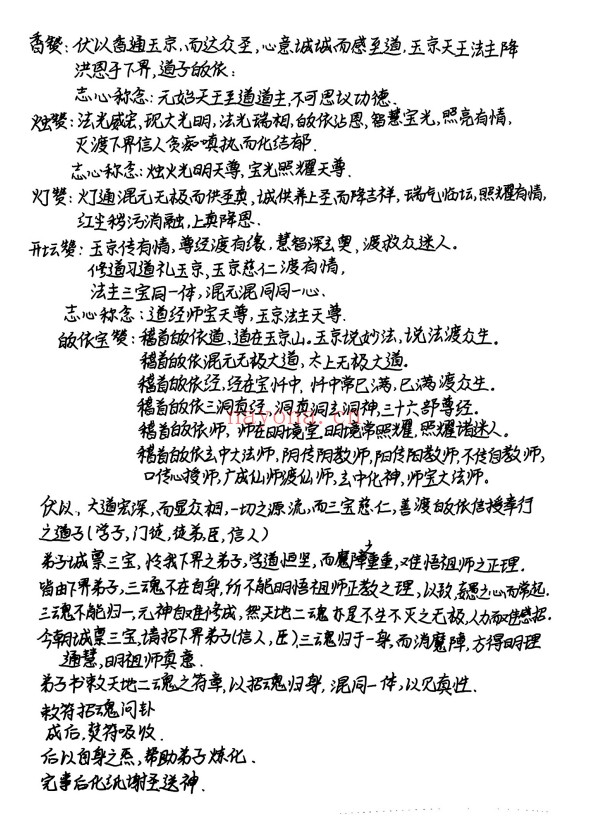 香赞：伏以香通玉京，而达众圣，心意诚诚而感至道，玉京天王法主降
洪恩于下界，道子皈依：
志心称念：元始天王至道道主，不可思议功德．
烛赞：法光威宏，现大光明，法光瑞相，皈依沾恩，智慧宝光，照亮有情，
灭渡下界信人贪痴嗔执，而化结郁．
志心称念：烛火光明天尊，宝光照耀天尊．
灯赞：灯通混元无极而供至真，诚供养上圣而降吉祥，瑞气临坛，照耀有情，
红尘秽污消融，上真降恩．
开坛赞：玉京传有情，尊经渡有缘．慧智深玄奥，渡救众迷人。
修道习道礼玉京，玉京慈仁渡有情，
法主三宝同一体，混元混同同一心．
志心称念：道经师宝天尊，玉京法主天尊．
皈依宝赞：稽首皈依道，道在玉京山。玉京说妙法，说法渡众生。
稽首皈依混元无极大道，太上无极大道。
稽首皈依经，经在宝忏中，忏中常已满，已满渡众生。
稽首皈依三洞真经，洞真洞玄洞神，三十六部尊经。
稽首皈依师，师在明境堂，明境常照耀，照耀诸迷人。
稽首皈依玄中大法师，阴传阴教师，阳传阳教师，不传自教师，
口传心授师，广成仙师渡仙师，玄中化神，师宝大法师。
nayona.cn
伏以，大道宏深，而显众相，一切之源流，而三宝慈仁，善渡皈依信授奉行
之道子（学子，门徒，徒弟，臣，信人）
弟子诚禀三宝，怜我下界之弟子，学道恒坚，而魔障重重，难悟祖师之正理．
皆由下界弟子，三魂不在自身，所不能明悟祖师正教之理，以致之心而常起．
三魂不能归一，元神自难修成，然天地二魂亦是不生不灭之无极，人力而难感招．
今朝诚禀三宝，请招下界弟子（信人，臣）三魂归于一身，而消魔障，方得明理
通慧，明祖师真意．
弟子书敕天地二魂之符章，以招魂归身，混同一体，以见真性．
敕符招魂问卦
成后，焚符吸收．
后以自身之炁，帮助弟子炼化．
完事后化纸谢圣送神．